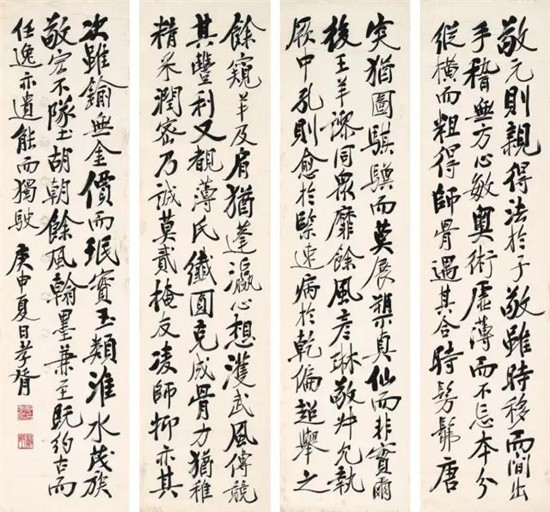 敬元則親得法於子敬雖時移而間出
手稽無方心敏奧術虛薄而不忘本分
縱橫而粗得師骨遇其合時髣髴唐
突猶圖騏驥而莫展塑真仙而非實爾
後王羊同眾靡餘風彥琳敬舛允執
厥中孔則愈於緊速病於乾偏超舉之
餘窺羊及肩猶蓬瀛心想濩武風傳競
其豐利又觀薄氏纖圓克成骨力猶稚
精采潤密乃誠莫貳掩友凌師抑亦其
次雖鍮無金價而珉實玉類淮水茂族
敬宏不隊玉胡朝餘風翰墨兼至既約古而
任逸亦遺能而獨駛 庚申夏日孝胥